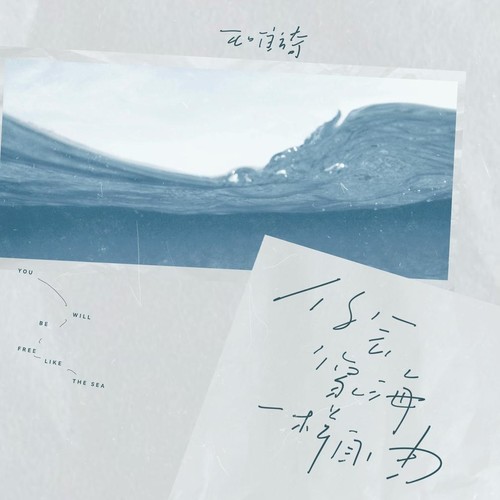 YOU
WILL
BE
FREE
LIKE
THE SEA
你會
像海
一樣自由